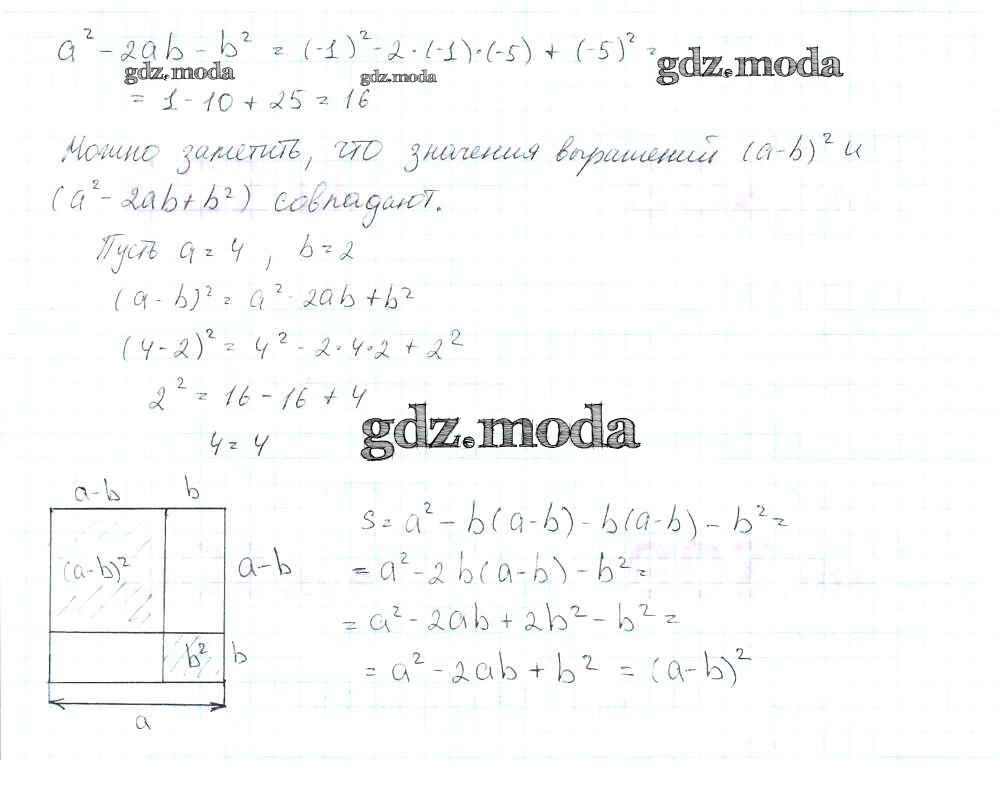 a² - 2ab - b² = (-1)² - 2·(-1)·(-5) + (-5)² =
gdz.moda
gdz.moda
gdz.moda
= 1 - 10 + 25 = 16
Можно заметить, что значения выражений (a-b)² и
(a² - 2ab + b²) совпадают.
Пусть a = 4, b = 2
(a - b)² = a² - 2ab + b²
(4 - 2)² = 4² - 2·4·2 + 2²
2² = 16 - 16 + 4
gdz.moda
4 = 4
a-b b
(a-b)²
a-b
b²
b
a
S = a² - b(a-b) - b(a-b) - b² =
= a² - 2b(a-b) - b² =
= a² - 2ab + 2b² - b² =
= a² - 2ab + b² = (a-b)²